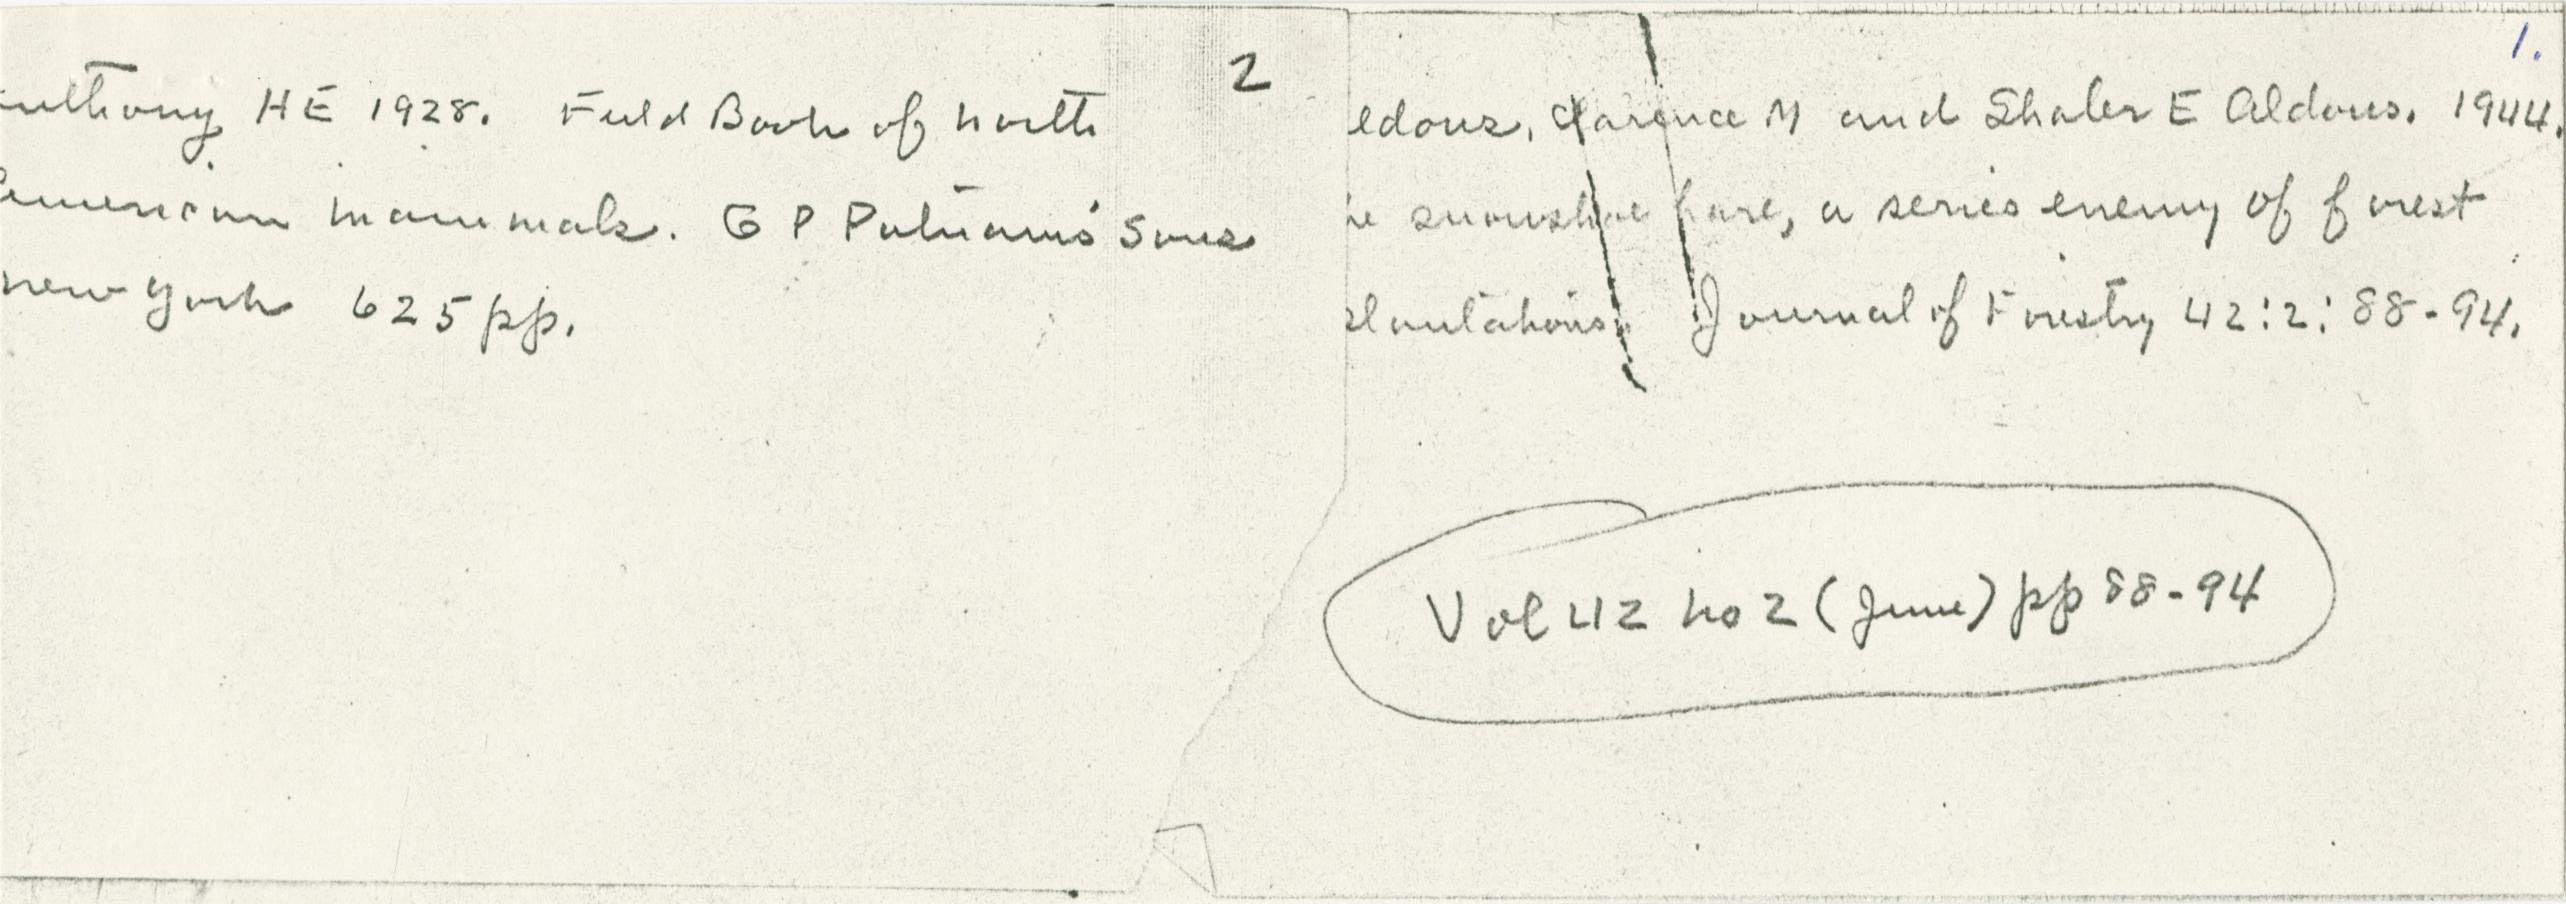 2
nthony HE 1928. Field Book of North
American Mammals. G P Putnam's Sons
New York 625 pp.
1.
ldous, Clarence M and Shaler E Aldous. 1944.
he snowshoe hare, a series enemy of forest
plantations. Journal of Forestry 42:2:88-94.
Vol 42 no 2 (June) pp 88-94